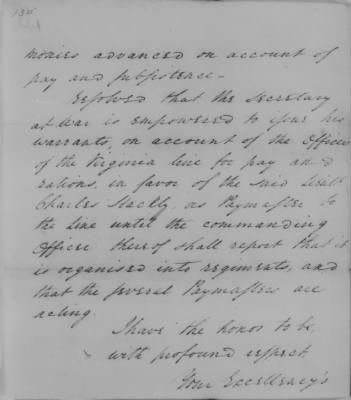 monies advanced on account of
pay and subsistence–
Resolved that the Secretary
at War is empowered to issue his
warrants, on account of the Officers
of the Virginia line for pay and
rations, in favor of the said Lieut.
Charles Stockly, as Paymaster to
the Line until the commanding
Officer thereof shall report that it
is organised into regiments, and
that the several Paymasters are
acting.
I have the honor to be,
with profound respect
Your Excellency's